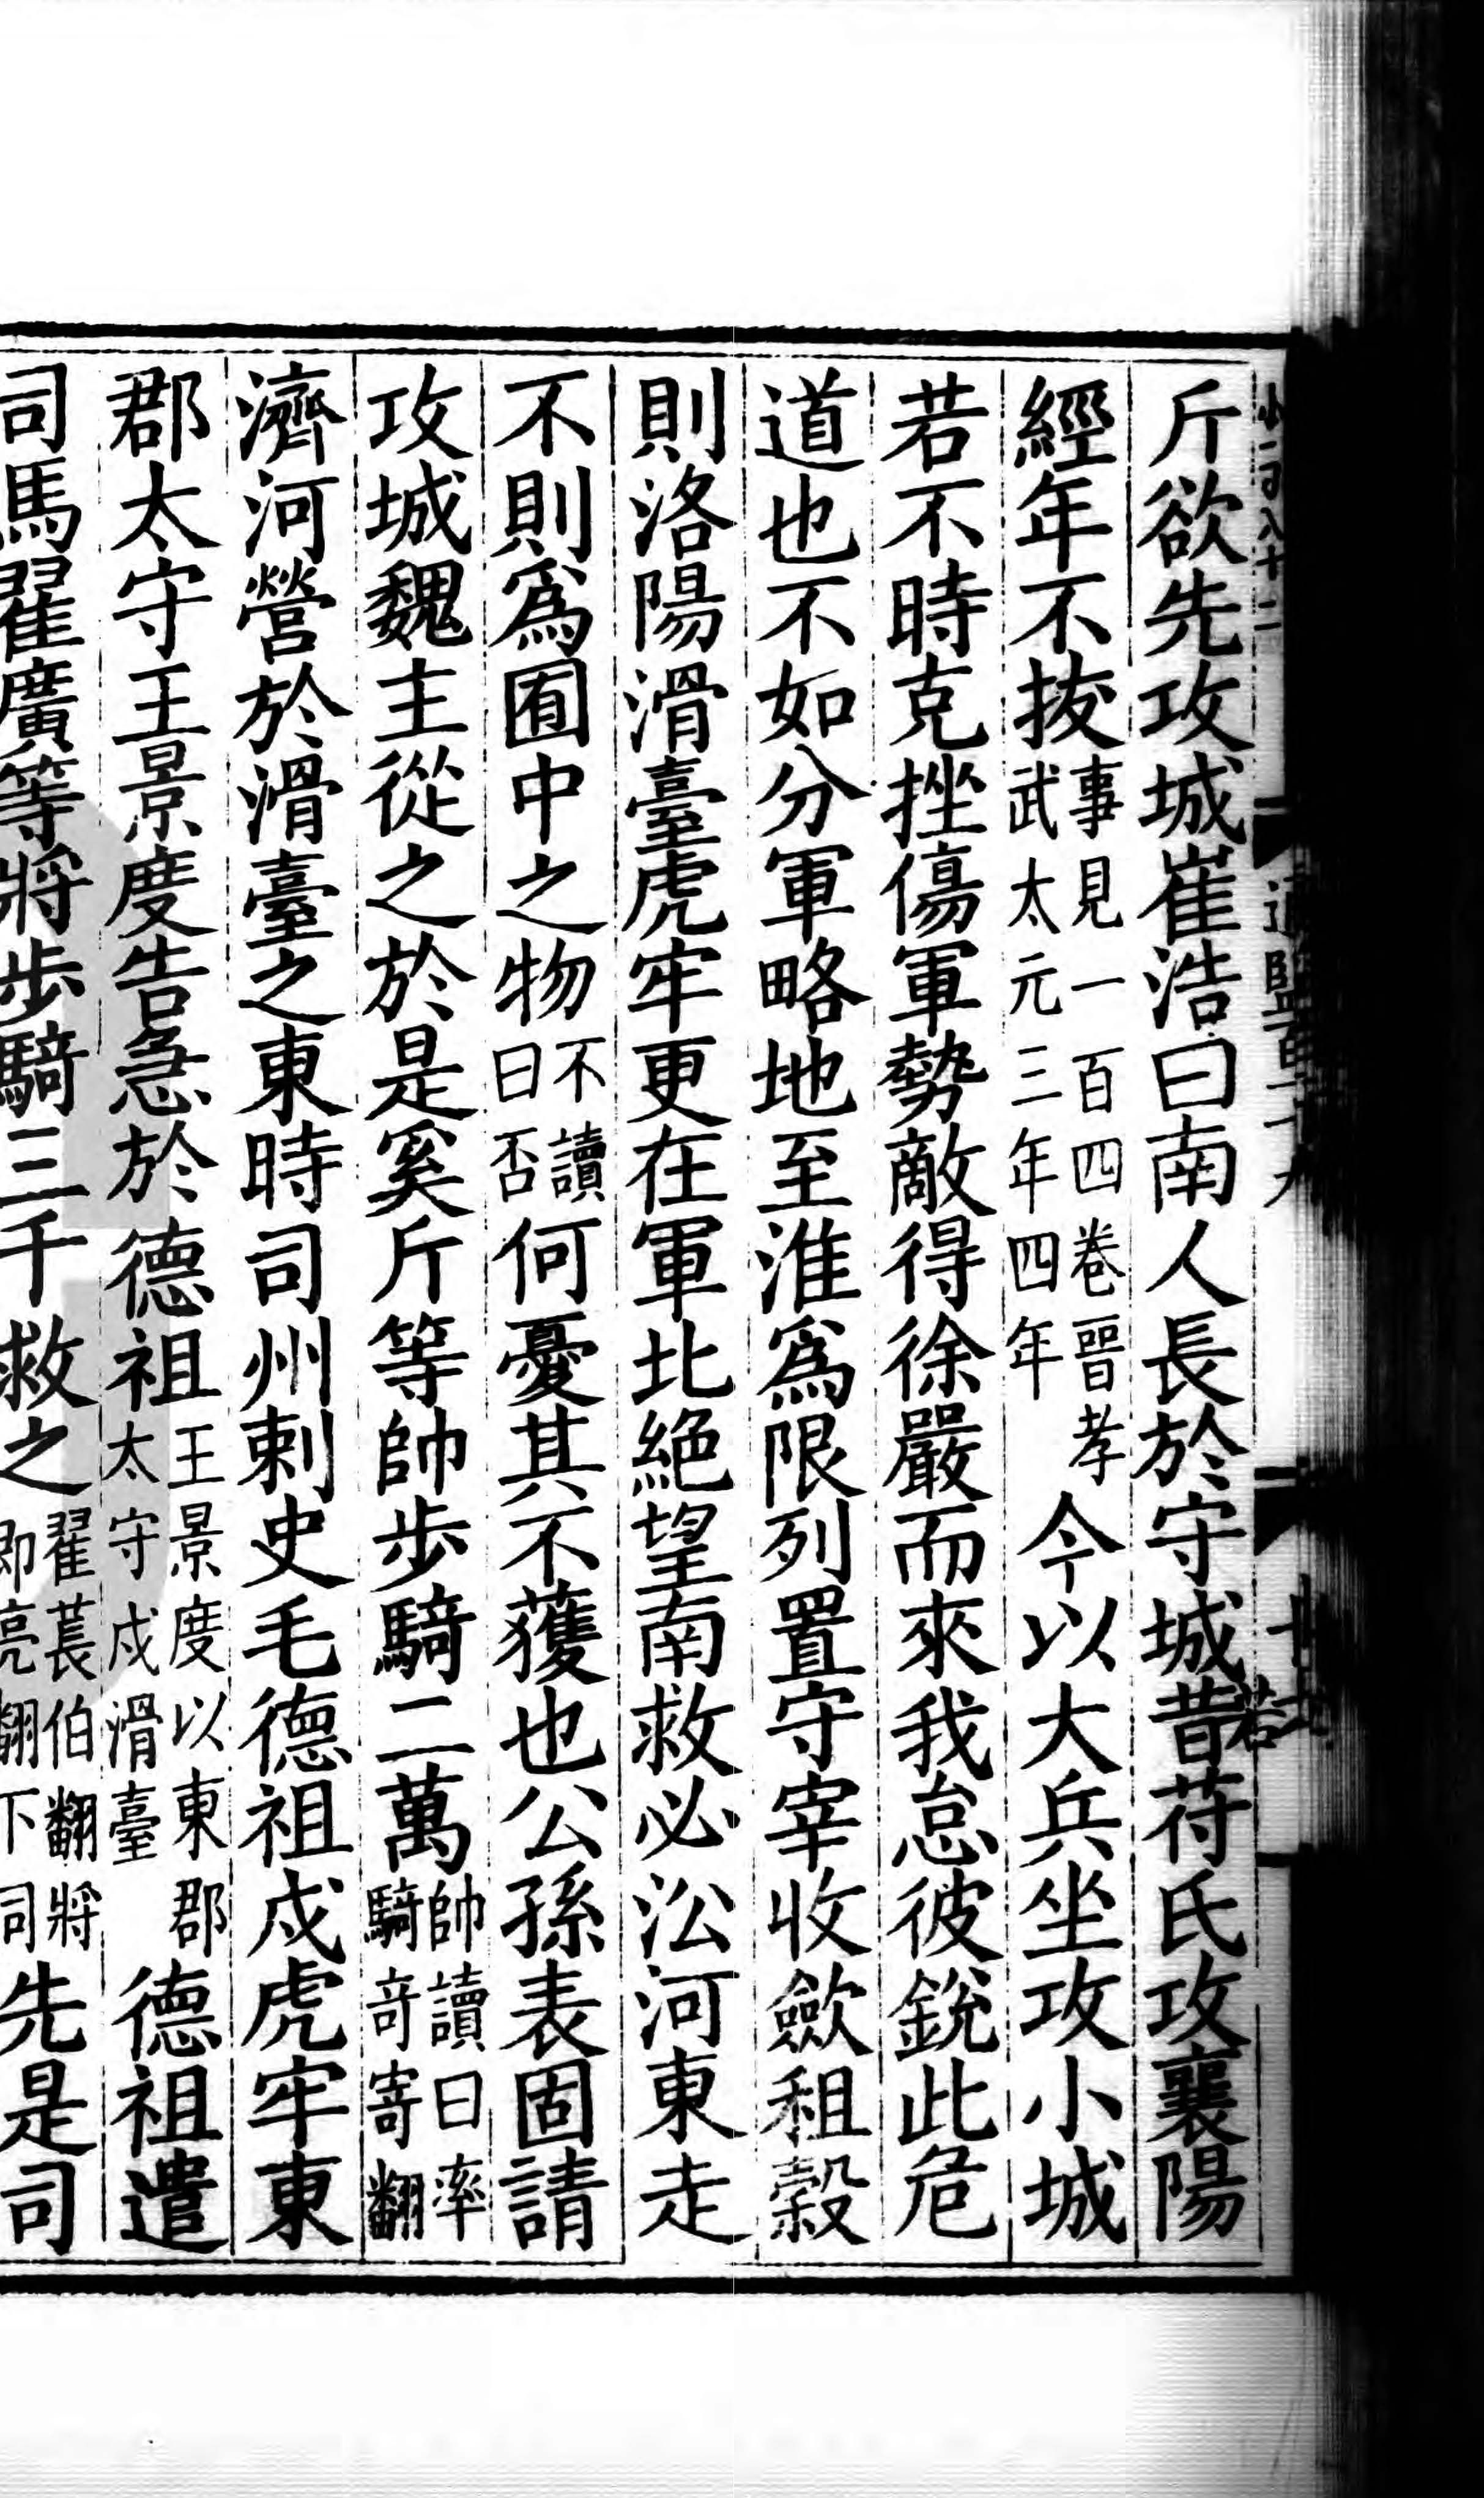 斤欲先攻城崔浩曰南人長於守城昔苻氏攻襄陽
經年不拔事見一百四卷晉孝武太元三年四年今以大兵坐攻小城
若不時克挫傷軍勢敵得徐嚴而來我怠彼銳此危
道也不如分軍略地至淮爲限列置守宰收斂租穀
則洛陽滑臺虎牢更在軍北絕望南救必㳂河東走
不則爲囿中之物不讀曰否何憂其不獲也公孫表固請
攻城魏主從之於是奚斤等帥步騎二萬帥讀曰率騎奇寄翻
濟河營於滑臺之東時司州刺史毛德祖戍虎牢東
郡太守王景度告急於德祖王景度以東郡太守戍滑臺德祖遣
司馬翟廣等將步騎三千救之翟萇伯翻將即亮翻下司先是司